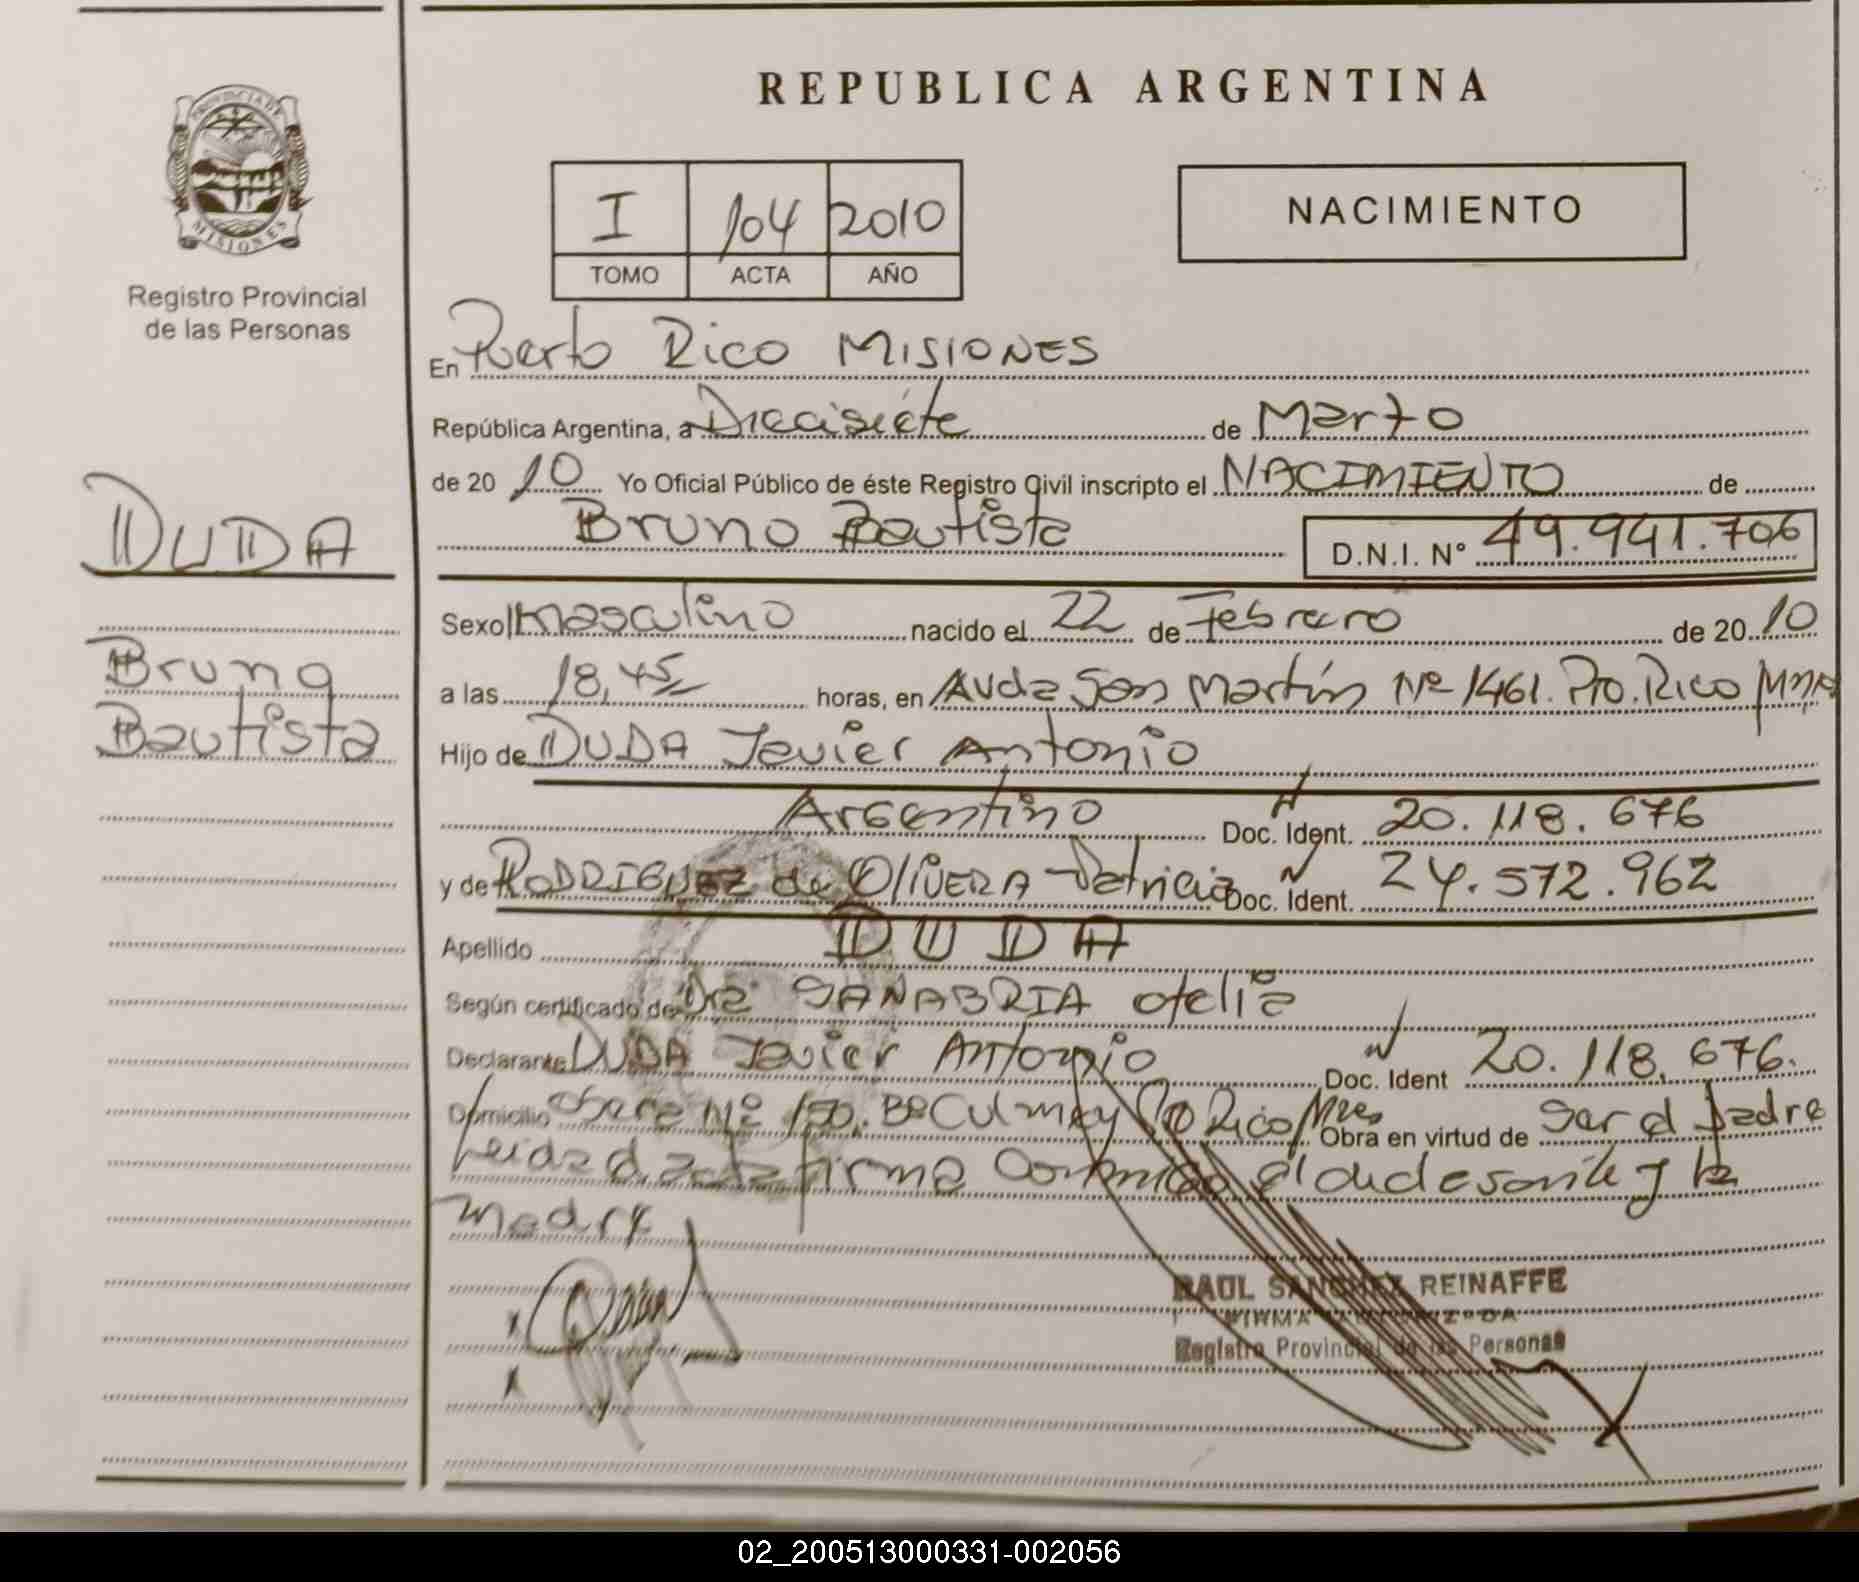 REPUBLICA ARGENTINA
PROVINCIA DE
MISIONES
Registro Provincial
de las Personas
I 104 2010
TOMO ACTA AÑO
NACIMIENTO
En Puerto Rico MISIONES
República Argentina, a Diecisiete de Marzo
de 20 10 Yo Oficial Público de éste Registro Civil inscripto el NACIMIENTO de
Bruno Bautista D.N.I. Nº 49.941.706
DUDA
Bruno
Bautista
Sexo masculino nacido el 22 de Febrero de 20 10
a las 18,45 horas, en Avda San Martín Nº 1461. Pto. Rico
Hijo de DUDA Javier Antonio
Argentino Doc. Ident. 20.118.676
y de RODRIGUEZ de OLIVERA Patricia Doc. Ident. 24.572.962
Apellido DUDA
Según certificado de Dra SANABRIA Otelia
Declarante DUDA Javier Antonio Doc. Ident 20.118.676.
Domicilio Nº 150. Bº Culmey Pto Rico Obra en virtud de ser el padre
Leida el acta firma Conmigo el y la
Madre
RAUL SANCHEZ REINAFFE
FIRMA AUTORIZADA
Registro Provincial de las Personas
02_200513000331-002056